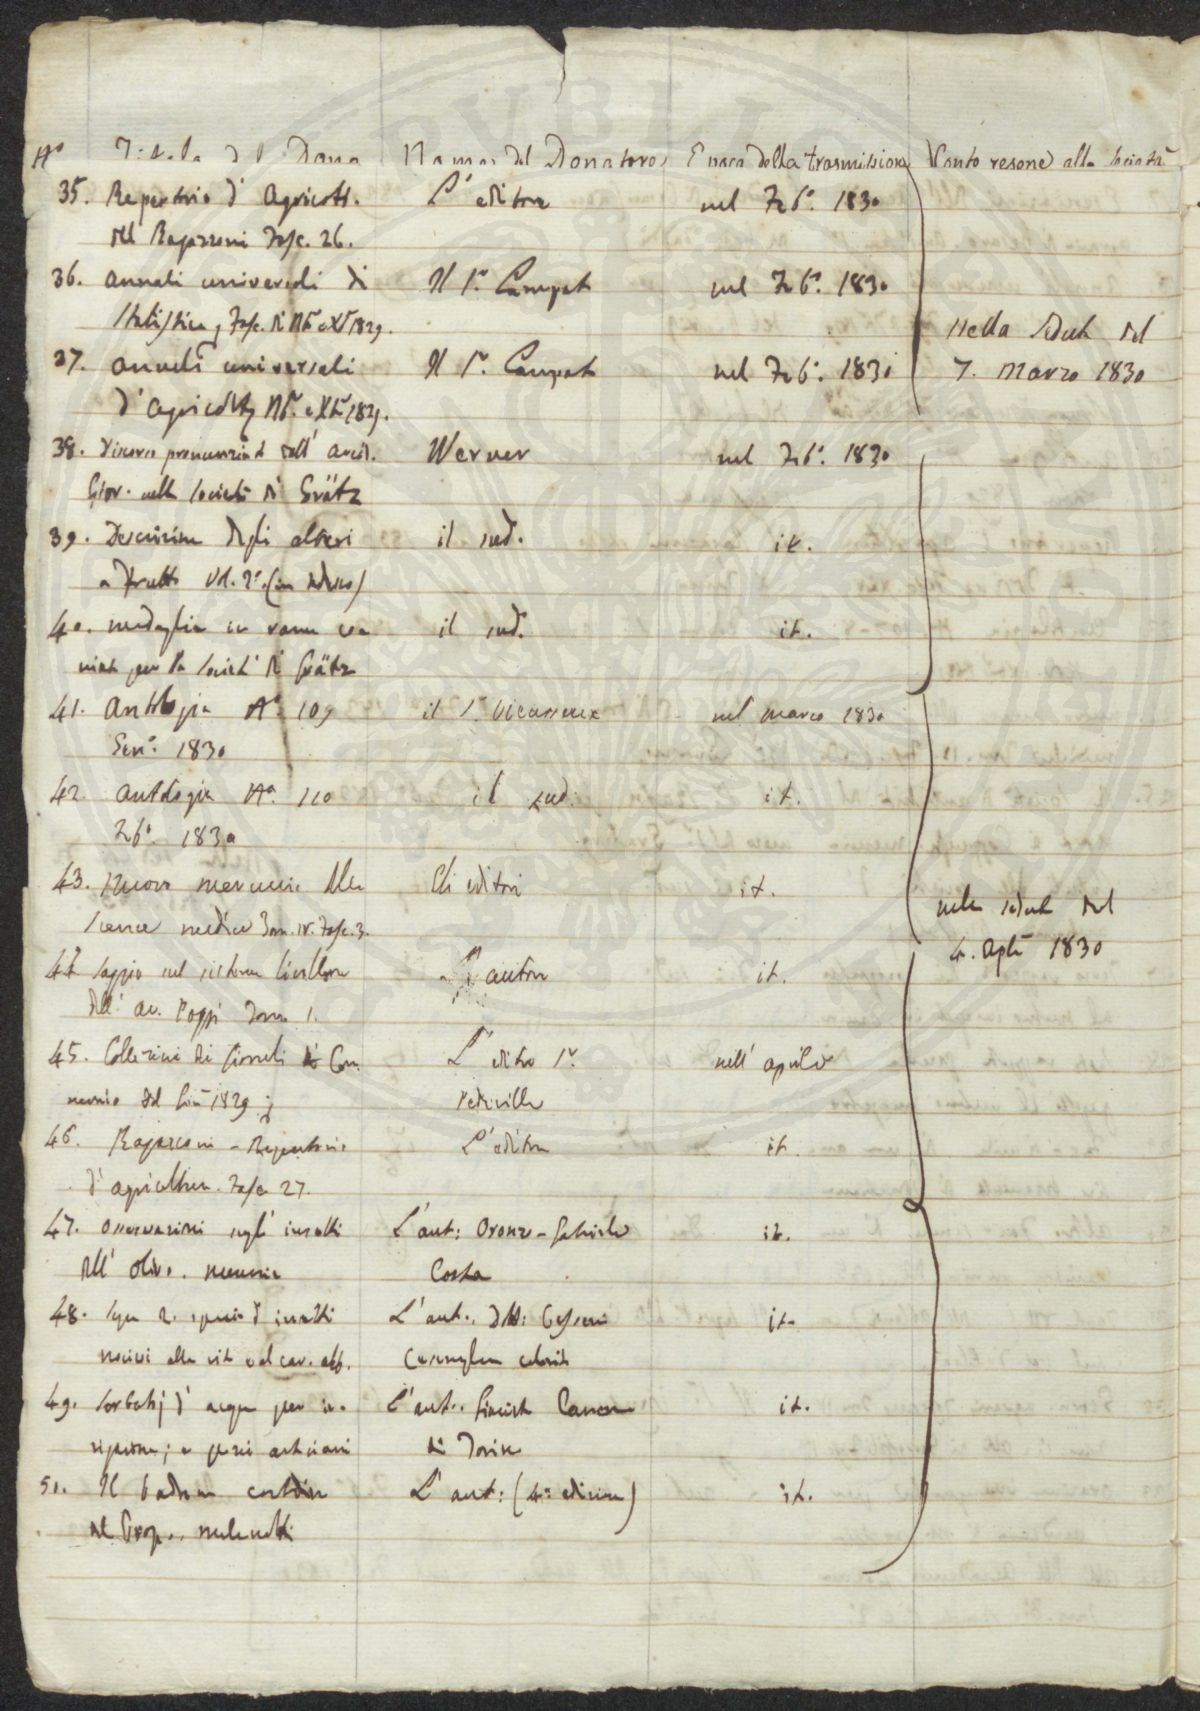 N° Titolo del Dono Nome del Donatore Epoca della trasmissione Conto resone alla società
35. Repertorio d' Agricolt. L' editore nel Feb°. 1830
del Ragazzoni Fasc. 26.
36. Annali universali di Il Sr. Lampat nel Feb°. 1830
Statistica, Fasc. di 1829.
Nella Seduta del
37. Annali universali Il Sr. Lampat nel Feb°. 1830 7. Marzo 1830
d' Agricolt. 1829.
38. Discorso pronunziato dall' Arcid. Werner nel Feb°. 1830
Giov. nella Società di Grätz
39. Descrizione degli alberi il sud. it.
a frutto Vol. 2°. (in tedesco)
40. medaglia in rame co- il sud. it.
niata per la Società di Grätz
41. Antologia N° 109 il Sr. Vieusseux nel Marzo 1830
Gen°. 1830
42. Antologia N°. 110 il sud. it.
Feb°. 1830
43. Nuovo mercurio delle Gli editori it.
Scienze mediche Tom. IV. Fasc. 3. nella seduta del
4. Aple 1830
44 Saggio sul sistema livellare L' autore it.
dell' av. Poggi Tomo 1.
45. Collezione dei Giornali di Com L' editore Sr. nell' aprile
mercio del 1829
46. Ragazzoni - Repertorio L' editore it.
d' agricoltura. Fasc. 27.
47. Osservazioni sugl' insetti L' aut: Oronzo - Gabriele it.
dell' olivo. memoria Costa
48. Sopra 2. specie d' insetti L' aut.: it.
nocivi alla vite
49. Serbatoj d' acqua per ir- L' aut.: it.
rigazione; e pozzi artesiani di Torino
50. Il L' aut: (4a. edizione) it.